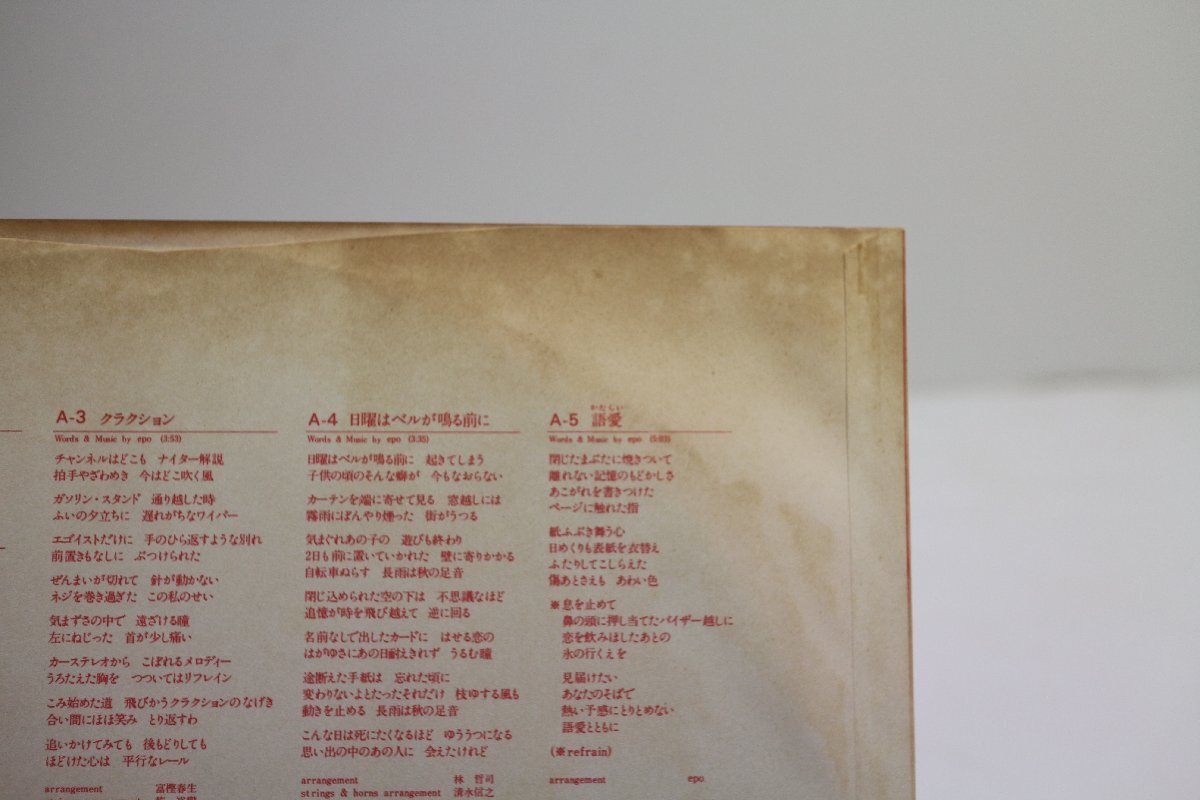 A-3 クラクション
Words & Music by epo (3:53)
チャンネルはどこも ナイター解説
拍手やざわめき 今はどこ吹く風
ガソリン・スタンド 通り越した時
ふいの夕立ちに 遅れがちなワイパー
エゴイストだけに 手のひら返すような別れ
前置きもなしに ぶつけられた
ぜんまいが切れて 針が動かない
ネジを巻き過ぎた この私のせい
気まずさの中で 遠ざける瞳
左にねじった 首が少し痛い
カーステレオから こぼれるメロディー
うろたえた胸を つついてはリフレイン
こみ始めた道 飛びかうクラクションのなげき
合い間にほほ笑み とり返すわ
追いかけてみても 後もどりしても
ほどけた心は 平行なレール
arrangement 富樫春生
A-4 日曜はベルが鳴る前に
Words & Music by epo (3:35)
日曜はベルが鳴る前に 起きてしまう
子供の頃のそんな癖が 今もなおらない
カーテンを端に寄せて見る 窓越しには
霧雨にぼんやり煙った 街がうつる
気まぐれあの子の 遊びも終わり
2日も前に置いていかれた 壁に寄りかかる
自転車ぬらす 長雨は秋の足音
閉じ込められた空の下は 不思議なほど
追憶が時を飛び越えて 逆に回る
名前なしで出したカードに はせる恋の
はがゆさにあの日耐えきれず うるむ瞳
途断えた手紙は 忘れた頃に
変わりないよとたったそれだけ 枝ゆする風も
動きを止める 長雨は秋の足音
こんな日は死にたくなるほど ゆううつになる
思い出の中のあの人に 会えたけれど
arrangement 林 哲司
strings & horns arrangement 清水信之
かたらい
A-5 語愛
Words & Music by epo (5:03)
閉じたまぶたに焼きついて
離れない記憶のもどかしさ
あこがれを書きつけた
ページに触れた指
紙ふぶき舞う心
日めくりも表紙を衣替え
ふたりしてこしらえた
傷あとさえも あわい色
※息を止めて
鼻の頭に押し当てたバイザー越しに
恋を飲みほしたあとの
氷の行くえを
見届けたい
あなたのそばで
熱い予感にとりとめない
語愛とともに
(※refrain)
arrangement epo